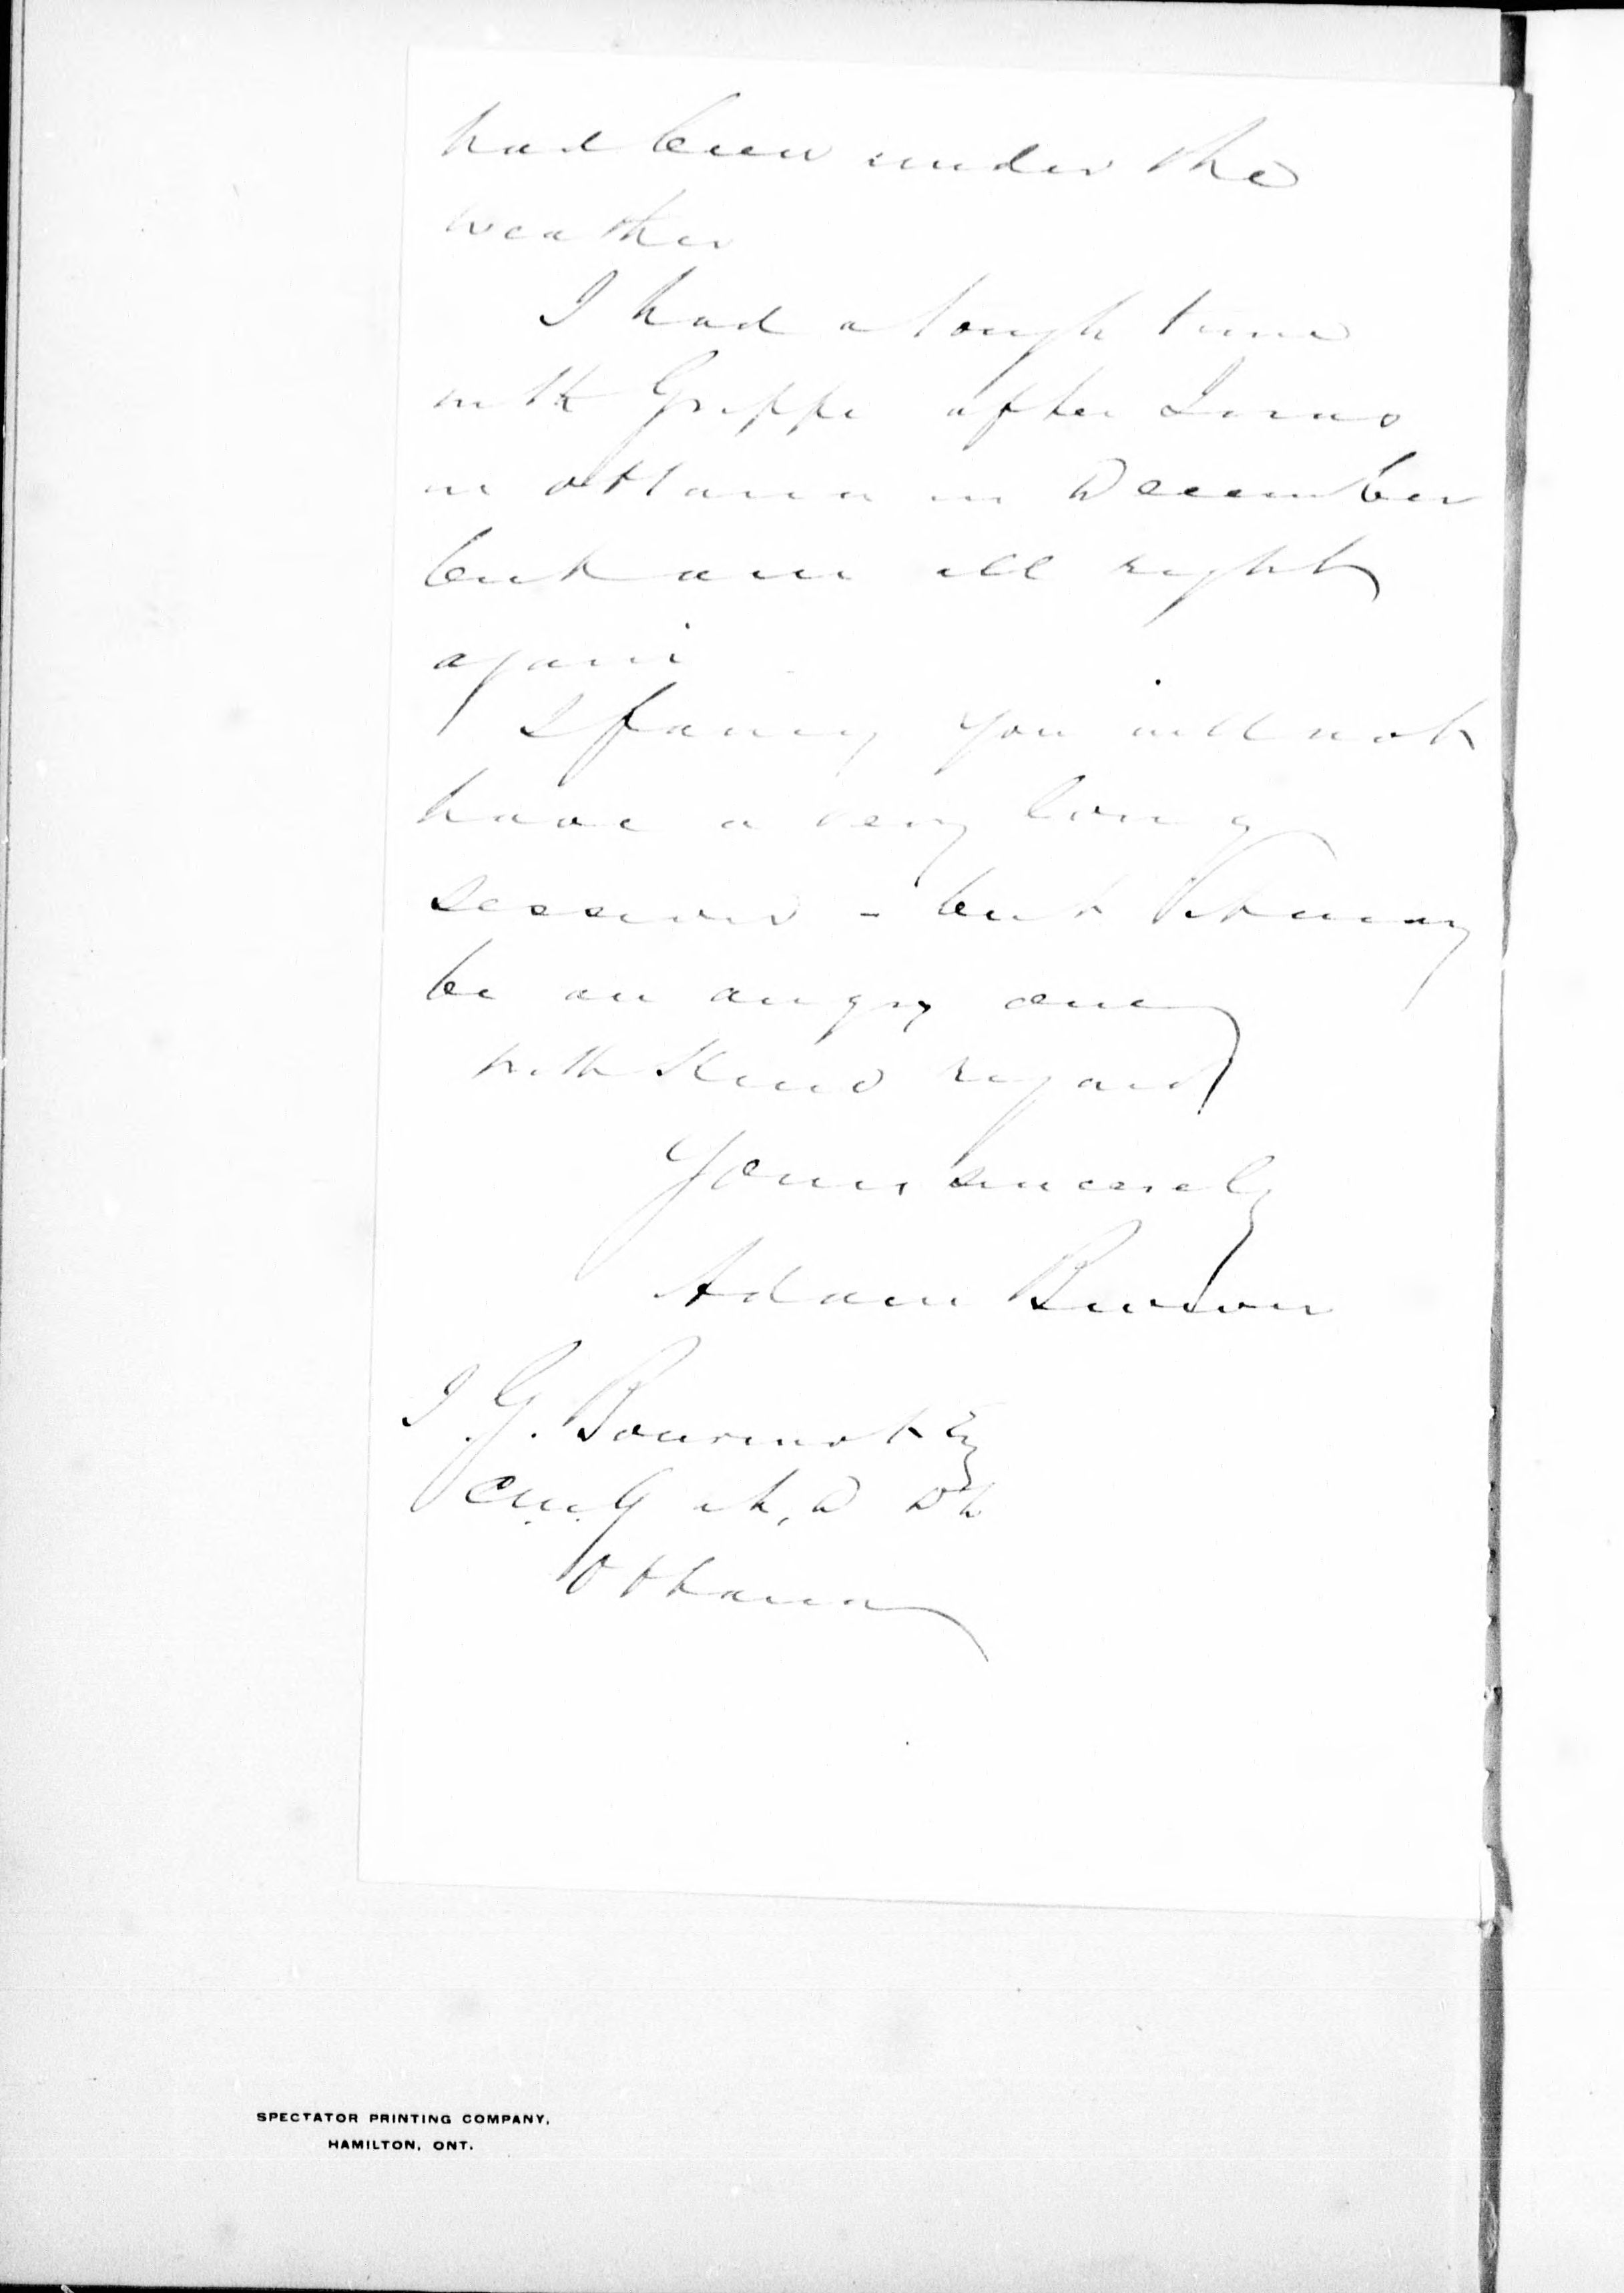 had been under the
weather
I had a tough time
with Grippe after I was
in Ottawa in December
but am all right
again
I fancy you will not
have a very long
session - but it may
be an angry one
with kind regards
Yours sincerely
Adam Brown
J. G. Bourinot Esq
C.M.G
Ottawa
SPECTATOR PRINTING COMPANY,
HAMILTON, ONT.